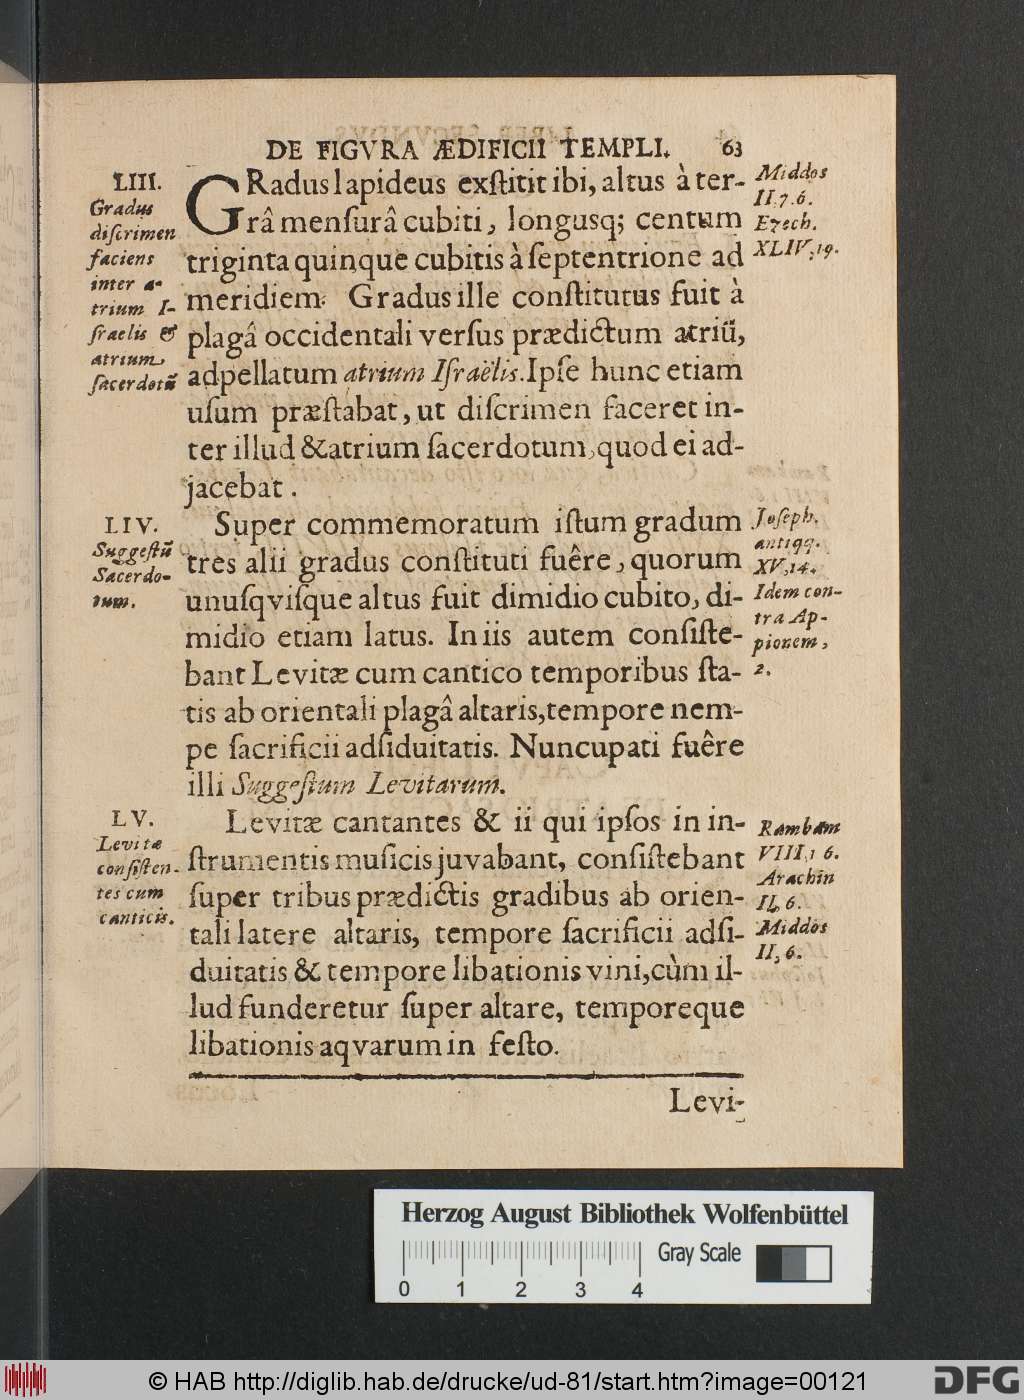 DE FIGVRA ÆDIFICII TEMPLI. 63
LIII.
Gradus
diſcrimen
faciens
inter a-
trium I-
ſraelis &
atrium
ſacerdotū
GRadus lapideus exſtitit ibi, altus à ter-
râ menſurâ cubiti, longusq; centum
triginta quinque cubitis à ſeptentrione ad
meridiem. Gradus ille conſtitutus fuit à
plagâ occidentali verſus prædictum atriū,
adpellatum atrium Iſraëlis. Ipſe hunc etiam
uſum præſtabat, ut diſcrimen faceret in-
ter illud & atrium ſacerdotum, quod ei ad-
jacebat.
Middos
II, 7. 6.
Ezech.
XLIV, 19.
LIV.
Suggeſtū
Sacerdo-
tum.
Super commemoratum iſtum gradum
tres alii gradus conſtituti fuêre, quorum
unuſqviſque altus fuit dimidio cubito, di-
midio etiam latus. In iis autem conſiſte-
bant Levitæ cum cantico temporibus ſta-
tis ab orientali plagâ altaris, tempore nem-
pe ſacrificii adſiduitatis. Nuncupati fuêre
illi Suggeſtum Levitarum.
Joſeph.
antiqq.
XV, 14.
Idem con-
tra Ap-
pionem,
2.
LV.
Levitæ
conſiſten-
tes cum
canticis.
Levitæ cantantes & ii qui ipſos in in-
ſtrumentis muſicis juvabant, conſiſtebant
ſuper tribus prædictis gradibus ab orien-
tali latere altaris, tempore ſacrificii adſi-
duitatis & tempore libationis vini, cùm il-
lud funderetur ſuper altare, temporeque
libationis aqvarum in feſto.
Rambam
VIII, 1 6.
Arachin
II, 6.
Middos
II, 6.
Levi-
Herzog August Bibliothek Wolfenbüttel
0 1 2 3 4
Gray Scale
© HAB http://diglib.hab.de/drucke/ud-81/start.htm?image=00121
DFG